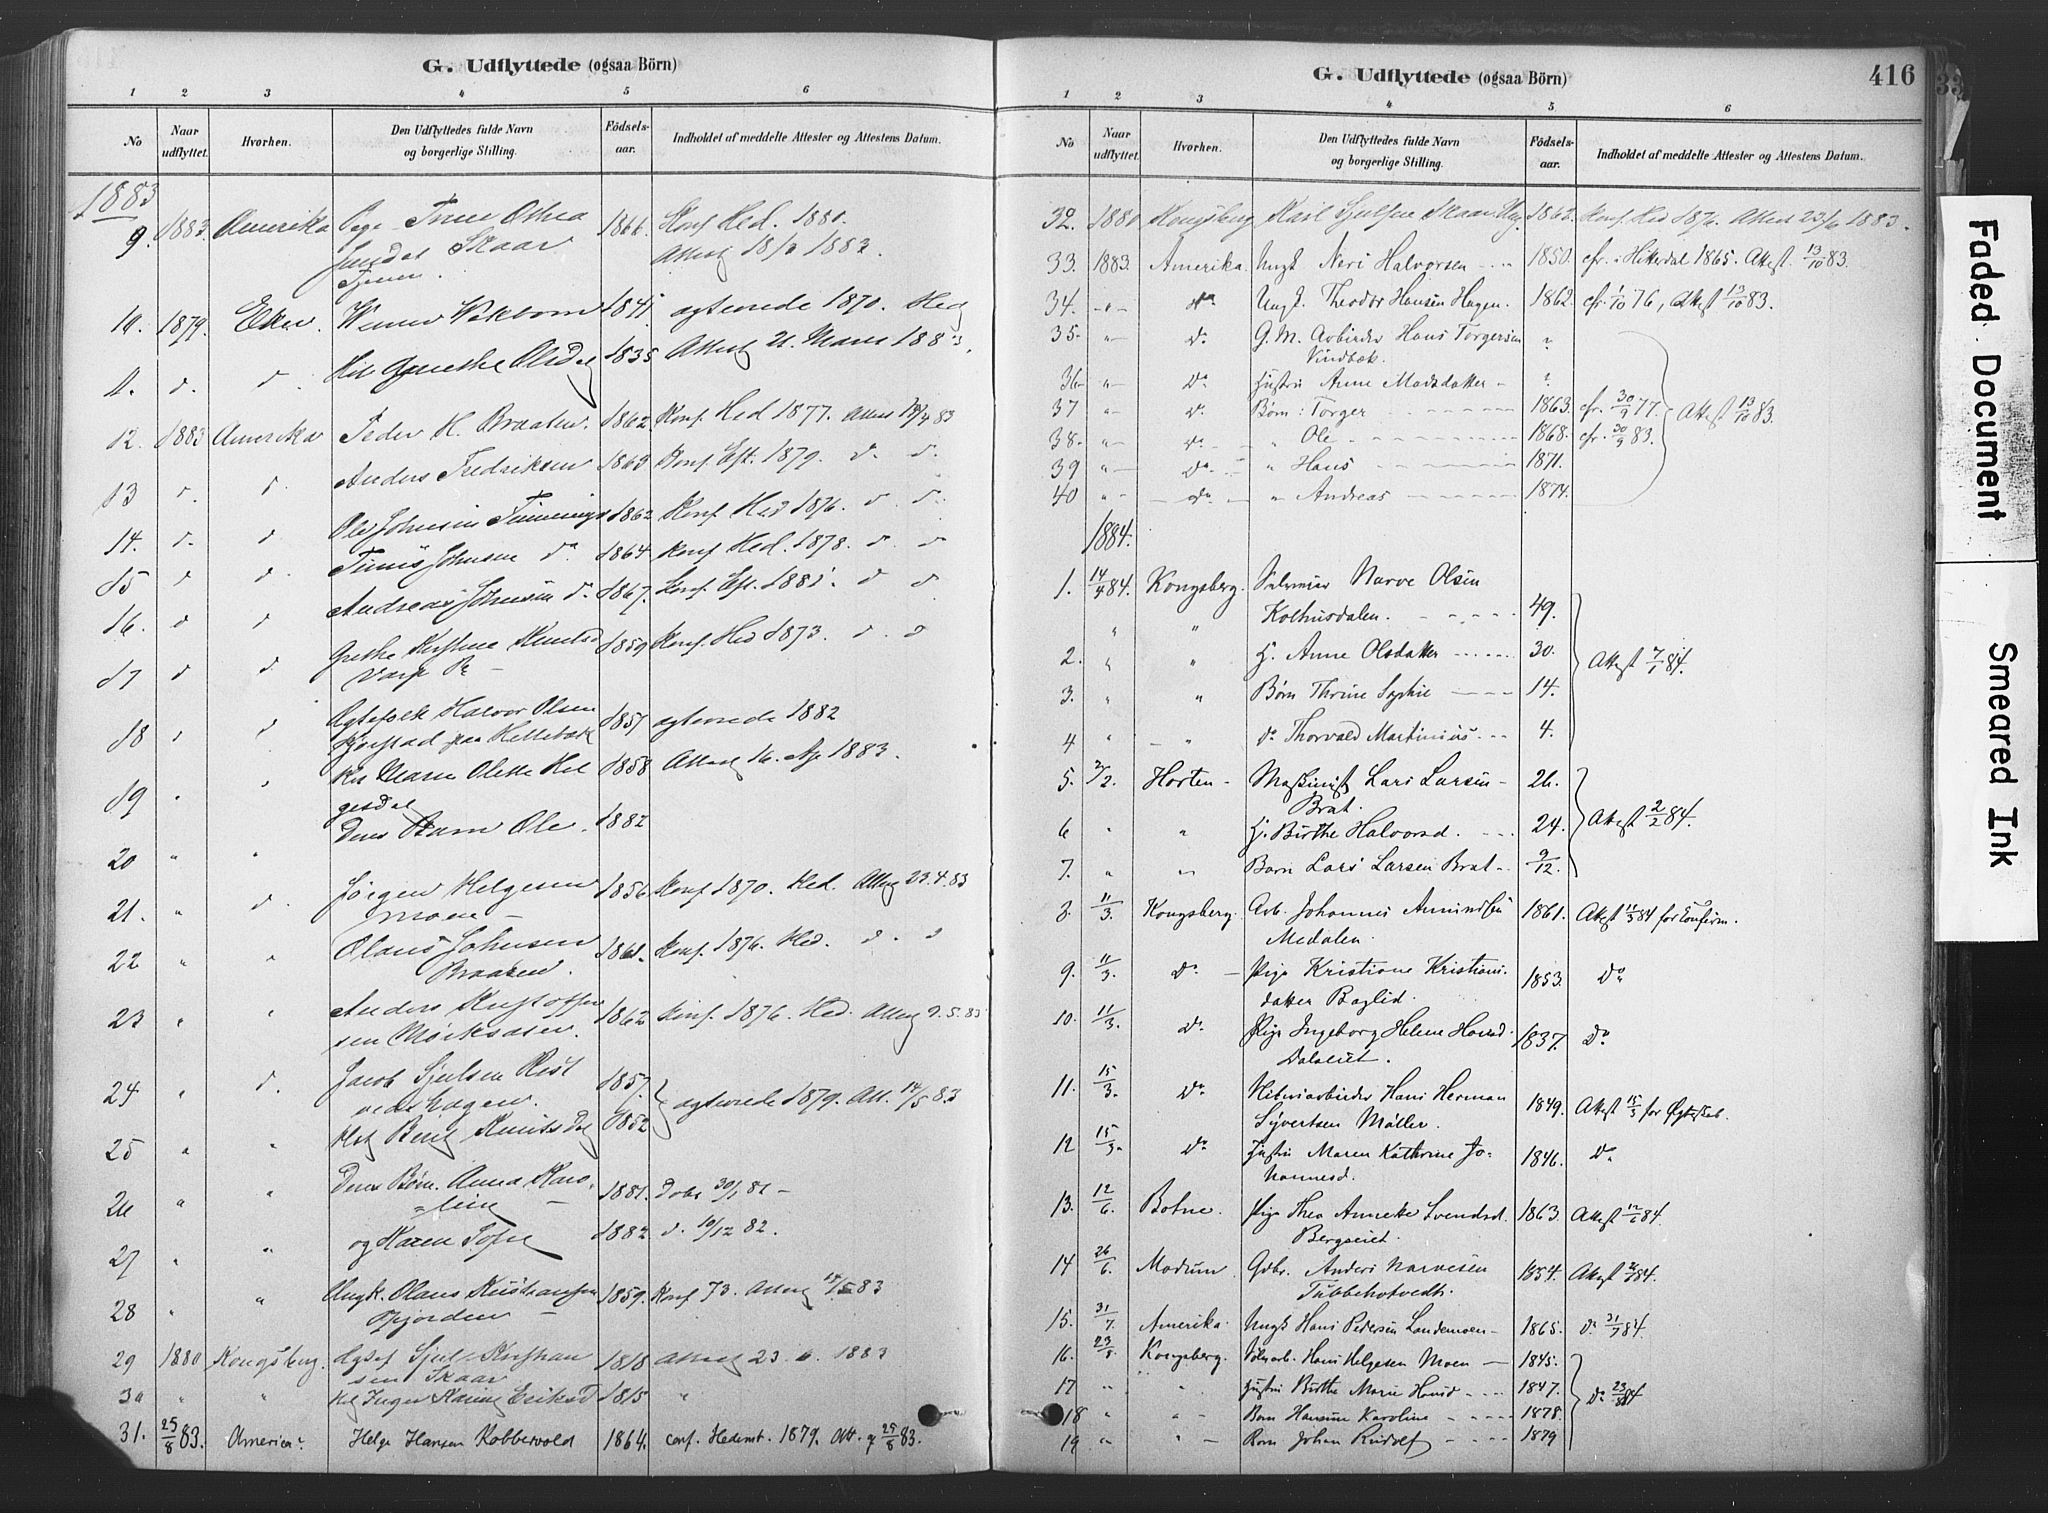 G. Udflyttede (ogsaa Börn)
1 2 3 4 5 6
No Naar udflyttet. Hvorhen. Den Udflyttedes fulde Navn og borgerlige Stilling. Födsels-aar. Indholdet af meddelte Attester og Attestens Datum.
1883
9. 1883. Amerika Pige Trine Othea 1866 Konf. Hed. 1880.
Skaar Attest 18/3 1883.
10. 1879. Eker. 1841 ægteviede 1870. Hed
11. d. d. 1835 Attest 21 Mars 1883.
12. 1883 Amerika Peder H. Braaten. 1862 Konf. Hed 1877. Attest 83
13 d. d. Anders Fredriksen 1863 Konf. Eft. 1879. d. d.
14. d. d Ole Johnsen 1862 Konf. Hed 1876. d d.
15 d d. Johnsen da 1864 Konf. Hed. 1878. d. d
16. d d Andreas Johnsen d. 1867. Konf. Eft. 1881. d d.
17 d d Grethe Kirstine Knutsd 1859 Konf. Hed 1873. d. d
18 d Ægtefolk Halvor Olsen 1857 ægteviede 1882
19 Maren Olette Hel 1858 Attest 16. Ap 1883.
gesdat
20 " " Deres Barn Ole. 1882
21. " d. Jörgen Helgesen 1856 Konf. 1870. Hed. Attest 23.4.83
Moen
22 " Olaus Johnsen 1861. Konf. 1876. Hed. d. d
Braaten.
23 " " Anders Kristoffer 1862 Konf. 1876. Hed. Attest 9.5.83
sen
24 " d. Jacob Sjulsen 1857. ægteviede 1879. Att. 14/5 83
hagen.
25 " " Berit Knutsd 1852
26 " " Deres Börn. Anna Karo- 1881. Döbt 30/1 81 -
line
27 " " og Karen Sofie 1882 d. 10/12 82.
28 " " Ungk. Olaus Kristiansen 1859. Konf 73. Attest 14/5 83
Fjorden
29 1880 Kongsberg. Ægtef Sjul Kristian 1818 Attest 23. 6. 1883
sen Skaar
30 " " Inger Karine Eriksd 1815 "
31. 25/8 83. America. Helge Hansen Kobbervold 1864. conf. Hedenst. 1879. Att. 25/8 83.
G. Udflyttede (ogsaa Börn) 416
1 2 3 4 5 6
No Naar udflyttet. Hvorhen. Den Udflyttedes fulde Navn og borgerlige Stilling. Födsels-aar. Indholdet af meddelte Attester og Attestens Datum.
32. 1880 Kongsberg Karl Sjulsen Skaar Ung. 1862. Konf. Hed 1876. Attest 23/6 1883.
33. 1883. Amerika. Ungk Neri Halvorsen 1850. cfr. i Hitterdal 1865. Attest. 13/10 83.
34. " " da Ungk. Theodor Hansen Hagen. 1862. cfr. 1/10 76, Attest 13/10 83.
35. " da. G. M. Arbeider Hans Torgersen ?
Vindbæk.
36. " Da. Hustru Anne Madsdatter ?
37 " Da. Börn: Torger 1863. cfr. 30/9 77. Attest 13/10 83.
38. " da. " Ole 1868. cfr. 30/9 83.
39 " Da. " Hans 1871.
40 " da " Andreas 1874.
1884.
1. 14/4 84. Kongsberg. Narve Olsen
Kolhusdalen. 49.
2. " " H. Anne Olsdatter 30. Attest 7/1 84.
3. " " Børn Thrine Sophie 14.
4 " " da Thorvald Martinius 4.
5. 2/2. Horten Maskinist Lars Larsen 26.
Brat.
6 " " H. Birthe Halvorsd. 24. Attest 2/2 84.
7. " " Barn Lars Larsen Brat 9/12.
8. 11/3. Kongsberg. Arb. Johannes 1861. Attest 11/3 84 for Confirm.
Medalen.
9. 11/3. Da. Pige Kristiane Kristians- 1853. Do
datter Baglid.
10. 11/3. Da. Pige Ingeborg Helene Hansd. 1837. Do
11. 15/3. Da Hans Herman 1849. Attest 15/3 for Ægteskab.
Syvertsen Møller.
12 15/3. Da. Hustru Maren Kathrine Jo- 1846. Da
hannesd.
13. 12/6. Botne. Pige Thea Annette Svendsd. 1863 Attest 12/6 84.
Bergseiet.
14 26/6. Modum. Gdbr. Anders Narvesen 1854. Attest 84.
Tubbehotvedt.
15. 31/7. Amerika. Ungk Hans Pedersen Landemoen 1865. da 31/7 84.
16. 23/8. Kongsberg. Hans Helgesen Moen 1845.
17 " " Hustru Birthe Marie Hansd 1847. da 23/8 84
18 " " Barn Hansine Karoline 1878.
19 " " Barn Johan Rudolf 1879
Faded Document
Smeared Ink